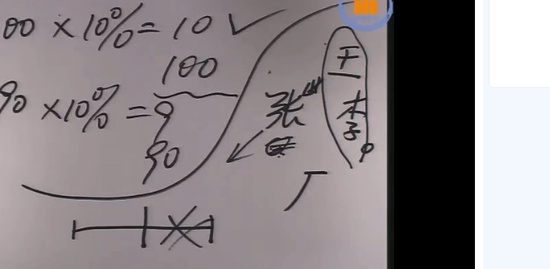 00 × 10% = 10 ✓
100
90 × 10% = 9
90
张
王
李